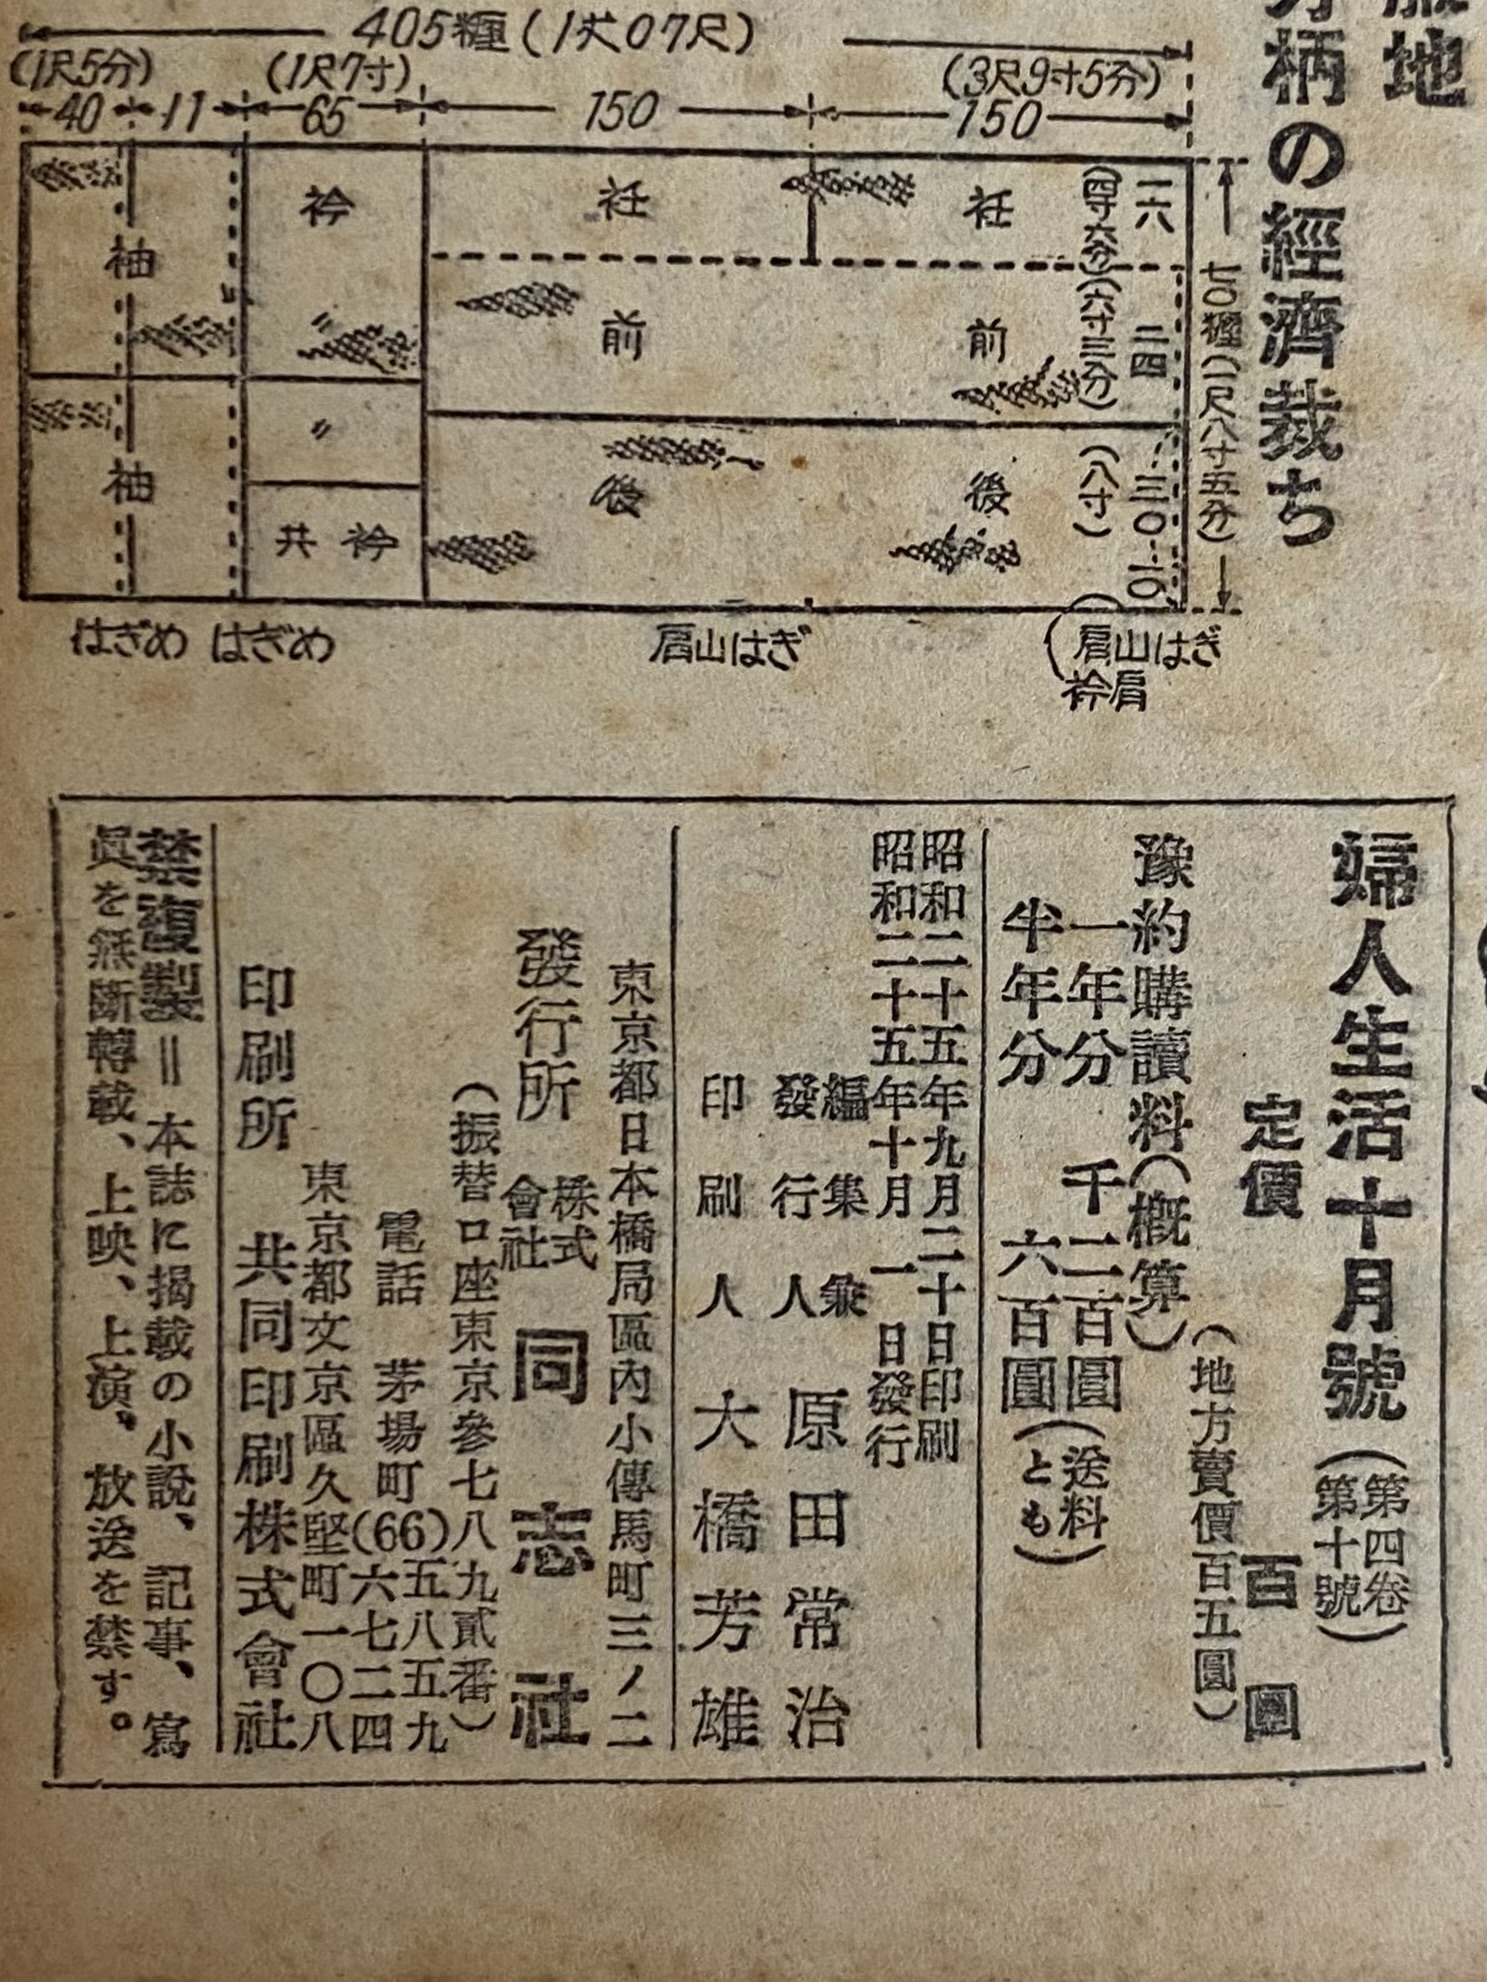 服地
柄の經濟裁ち
405糎(1丈07尺)
(1尺5分)
(1尺7寸)
(3尺9寸5分)
40
11
65
150
150
袖
袖
衿
〃
〃
共衿
衽
衽
前
前
後
後
一六
(四寸六分)
二四
(六寸三分)
三〇
(八寸)
一〇
七〇糎(一尺八寸五分)
はぎめ
はぎめ
肩山はぎ
(肩山はぎ
衿肩)
婦人生活十月號
(第四卷
第十號)
定價 百圓
(地方賣價百五圓)
豫約購讀料(槪算)
一年分 千二百圓
半年分 六百圓
(送料
とも)
昭和二十五年九月二十日印刷
昭和二十五年十月一日發行
編集兼
發行人 原田常治
印刷人 大橋芳雄
東京都日本橋局區內小傳馬町三ノ二
發行所 株式
會社 同志社
(振替口座東京參七八九貳番)
電話 茅場町(66)五八五九
六七二四
東京都文京區久堅町一〇八
印刷所 共同印刷株式會社
禁複製=本誌に揭載の小說、記事、寫
眞を無斷轉載、上映、上演、放送を禁す。